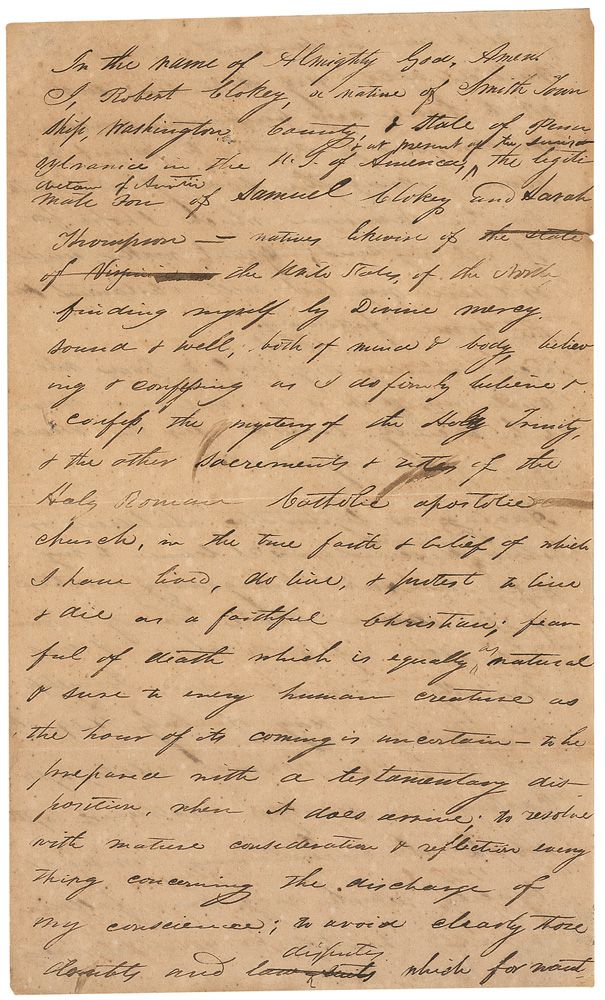 In the name of Almighty God, Amen.
I, Robert Clokey, a native of Smith Town
ship, Washington County, & State of Penn
& at present of the
sylvania in the U. S. of America, the legiti
of Austin
mate son of Samuel Clokey and Sarah
Thompson — natives likewise of the state
of Virginia the Unite States, of the North
finding myself by Divine mercy,
sound & well, both of mind & body, believ
ing & confessing as I do firmly believe &
confess, the mystery of the Holy Trinity,
& the other sacrements & rites of the
Holy Roman Catholic apostolic
church, in the true faith & belief of which
I have lived, do live, & protest to live
& die as a faithful Christian; fear
ful of death which is equally as natural
& sure to every human creature as
the hour of its coming is uncertain – to be
prepared with a testamentary dis
position, when it does arrive; to resolve
with mature consideration & reflection every
thing concerning the discharge of
my conscience; to avoid clearly those
disputes
doubts and law suits which for want